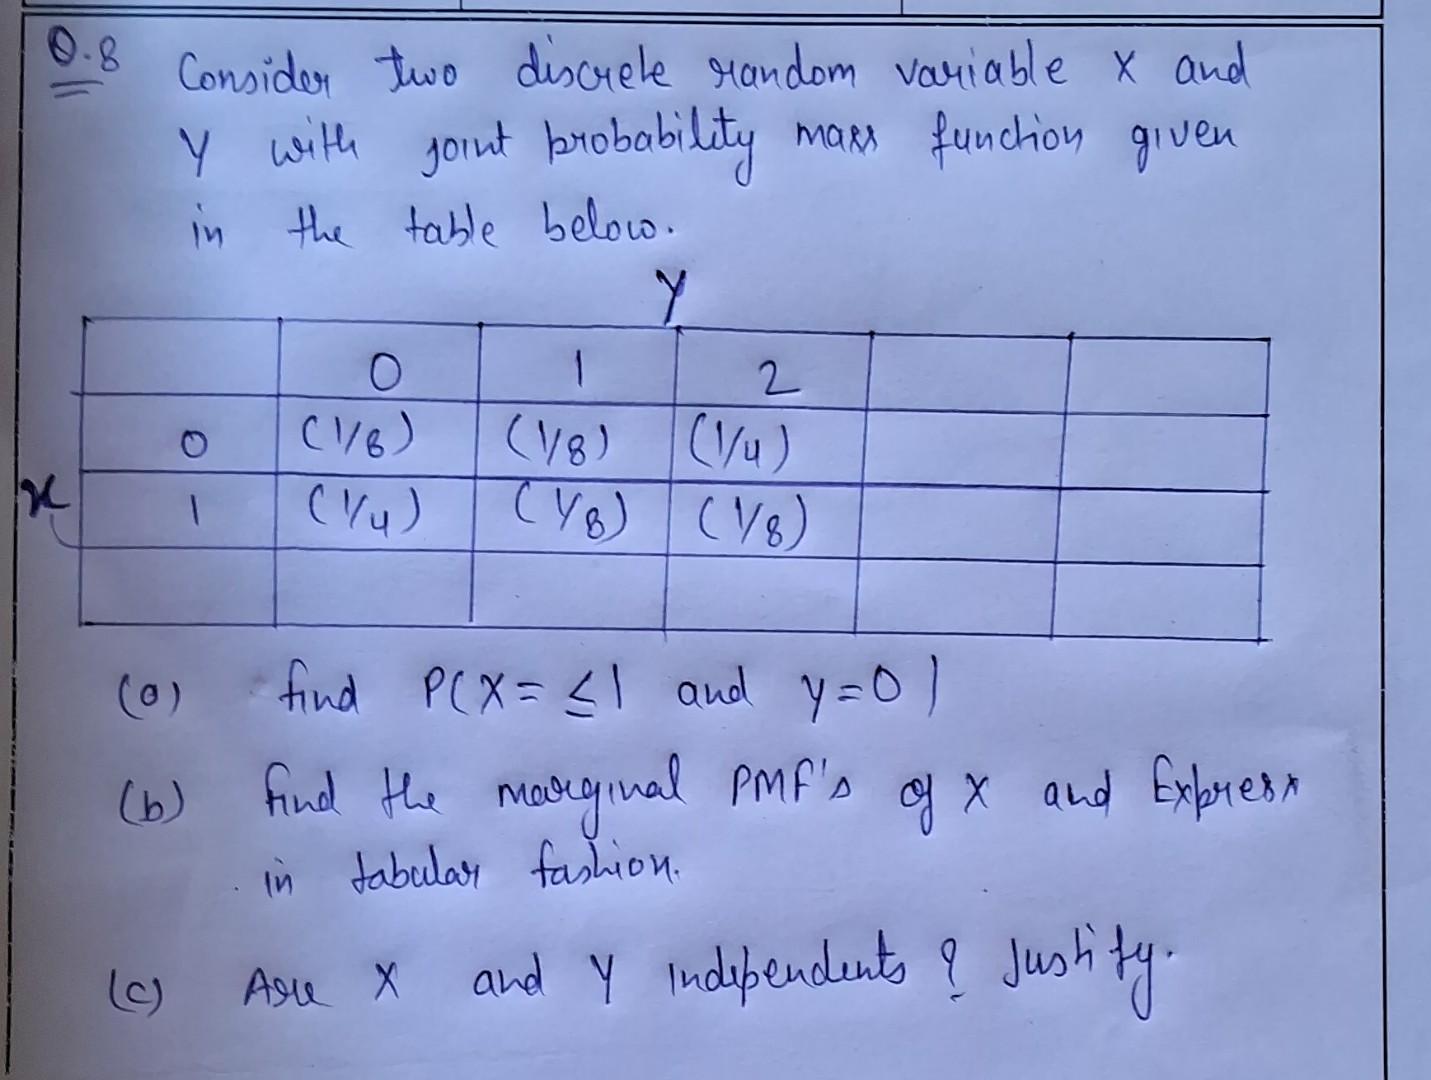 Q.8 Consider two discrete random variable X and
Y with joint probability mass function given
in the table below.
Y
0 1 2
0 (1/8) (1/8) (1/4)
x 1 (1/4) (1/8) (1/8)
(a) find P(X= ≤1 and y=0)
(b) find the marginal PMF's of X and Express
in tabular fashion.
(c) Are X and Y independents ? Justify.